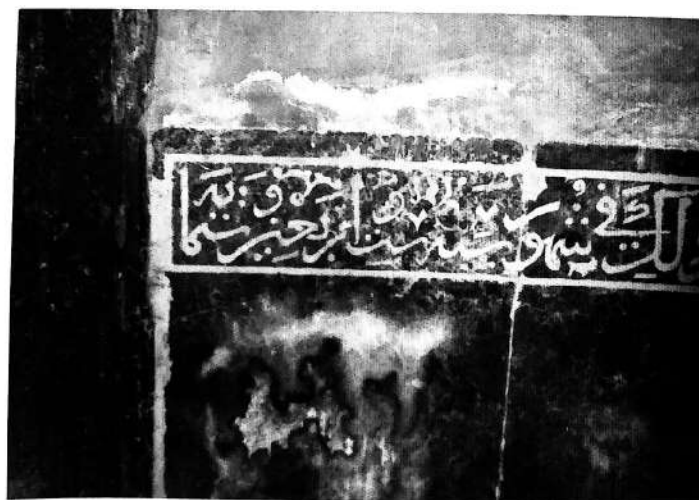 ذلك في شهور سنة ست و اربعين و ثمانماية